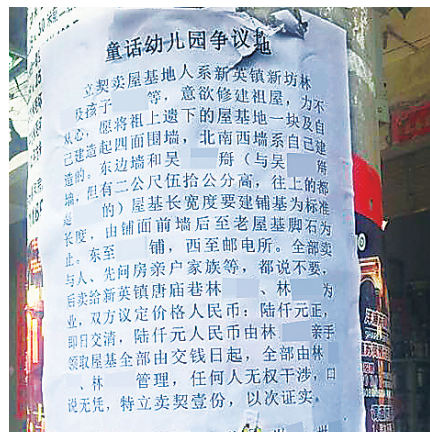 童话幼儿园争议地
立契卖屋基地人系新英镇新坊林
及孩子 等，意欲修建祖屋，力不
从心，愿将祖上遗下的屋基地一块及自
己建造起四面围墙，北南西墙系自己建
造的。东边墙和吴 搿（与吴 搿
墙，但有二公尺伍拾公分高，往上的都
是 的）屋基长宽度要建铺基为标准
长度，由铺面前墙后至老屋基脚石为
止。东至 铺，西至邮电所。全部卖
与人、先问房亲户家族等，都说不要，
后卖给新英镇唐庙巷林 、林 为
业，双方议定价格人民币：陆仟元正，
即日交清，陆仟元人民币由林 亲手
领取屋基全部由交钱日起，全部由林
、林 管理，任何人无权干涉，口
说无凭，特立卖契壹份，以次证实。